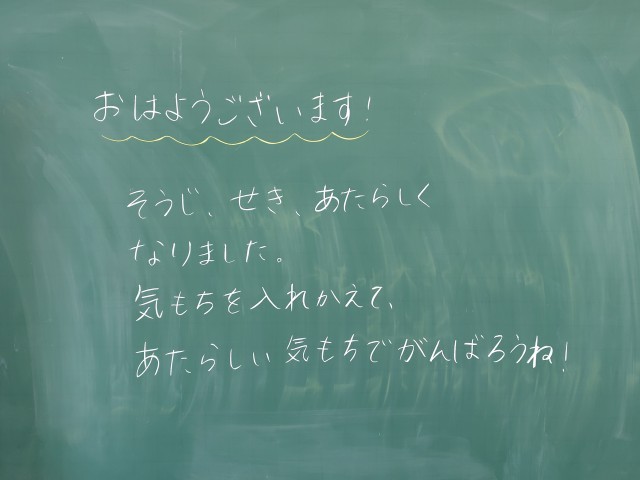 おはようございます!
そうじ、せき、あたらしく
なりました。
気もちを入れかえて、
あたらしい気もちでがんばろうね!